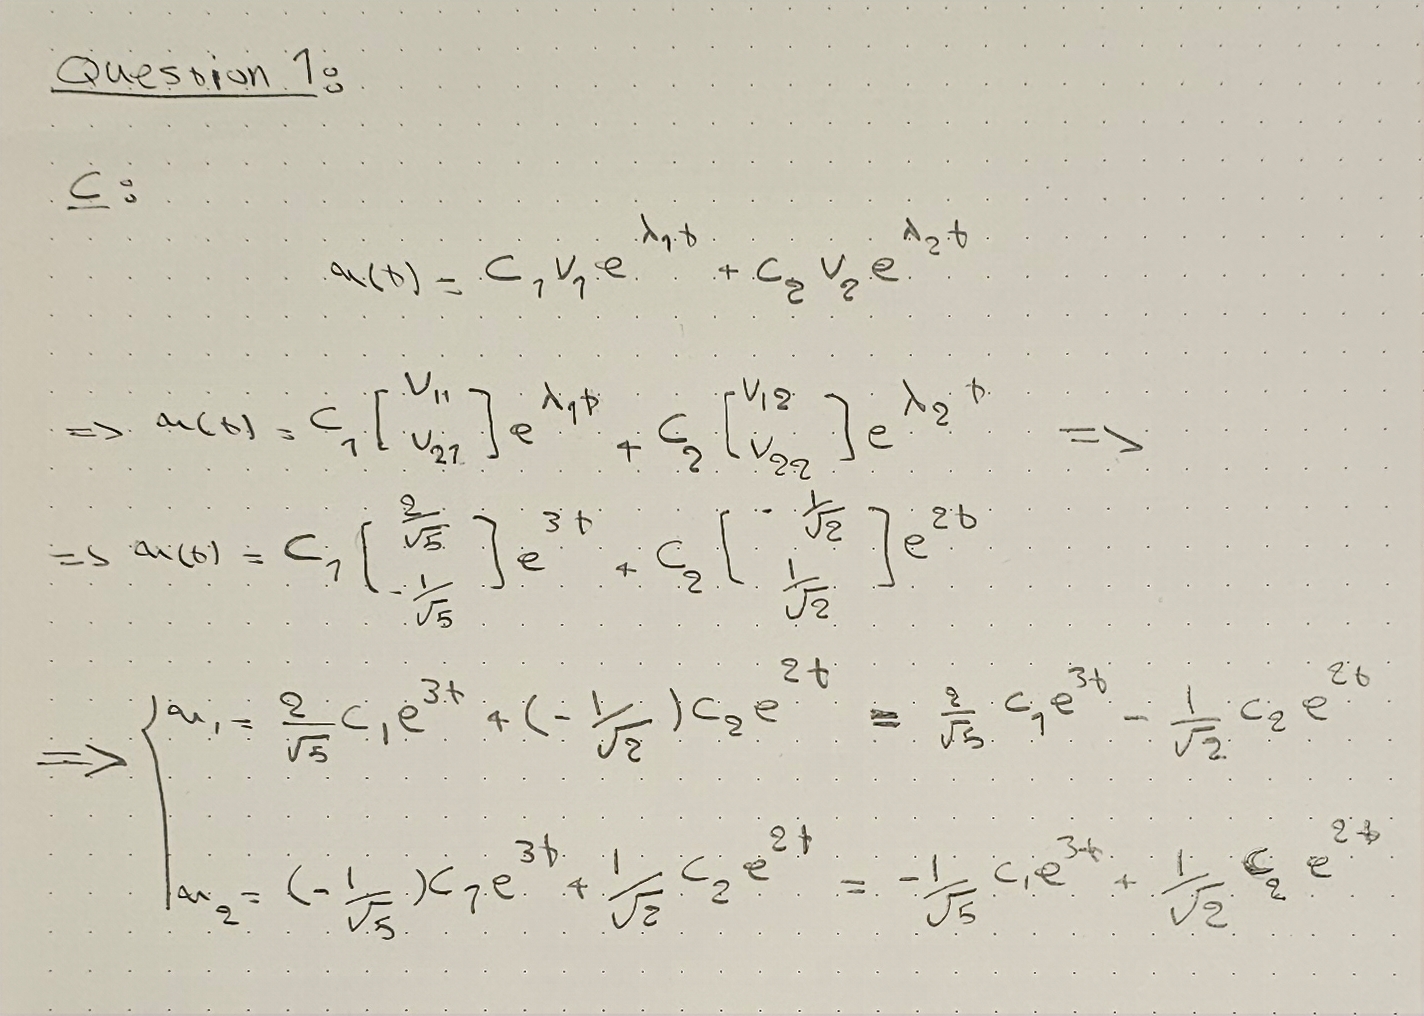 Question 1:
C:
x(t) = C₁ V₁ e^{λ₁t} + C₂ V₂ e^{λ₂t}
=> x(t) = C₁ [V₁₁ V₂₁] e^{λ₁t} + C₂ [V₁₂ V₂₂] e^{λ₂t} =>
=> x(t) = C₁ [2/√5 -1/√5] e^{3t} + C₂ [-1/√2 1/√2] e^{2t}
=> { x₁ = 2/√5 C₁ e^{3t} + (-1/√2) C₂ e^{2t} = 2/√5 C₁ e^{3t} - 1/√2 C₂ e^{2t}
x₂ = (-1/√5) C₁ e^{3t} + 1/√2 C₂ e^{2t} = -1/√5 C₁ e^{3t} + 1/√2 C₂ e^{2t}